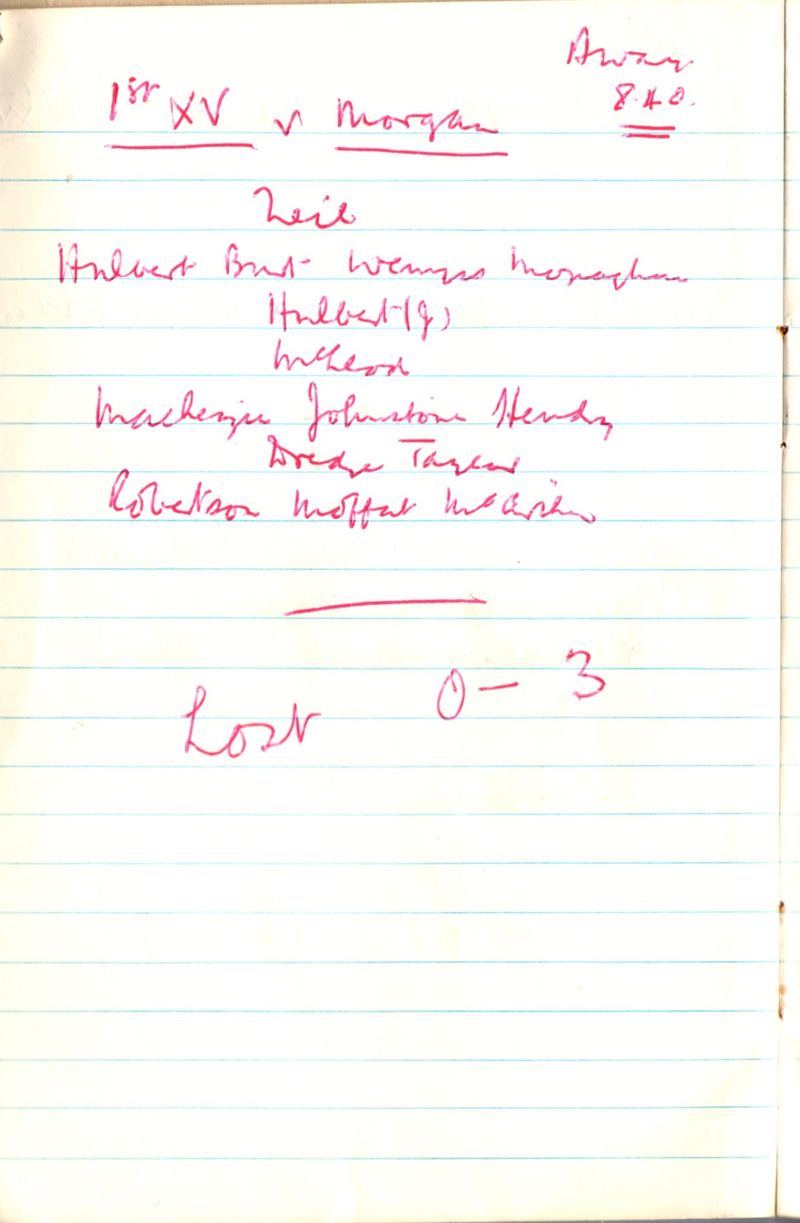 Away
8.40.
1st XV v Morgan
Neil
Hulbert Burt Wemyss Monaghan
Hulbert (J)
McLeod
Mackenzie Johnstone Hendry
Dredge Taylor
Robertson Moffat
Lost 0 - 3